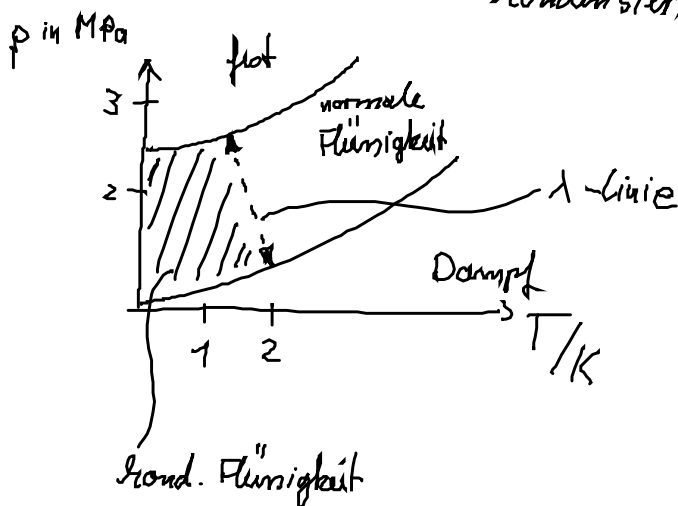 p in MPa
fest
3
normale
Flüssigkeit
2
λ-Linie
Dampf
1 2
T/K
kond. Flüssigkeit